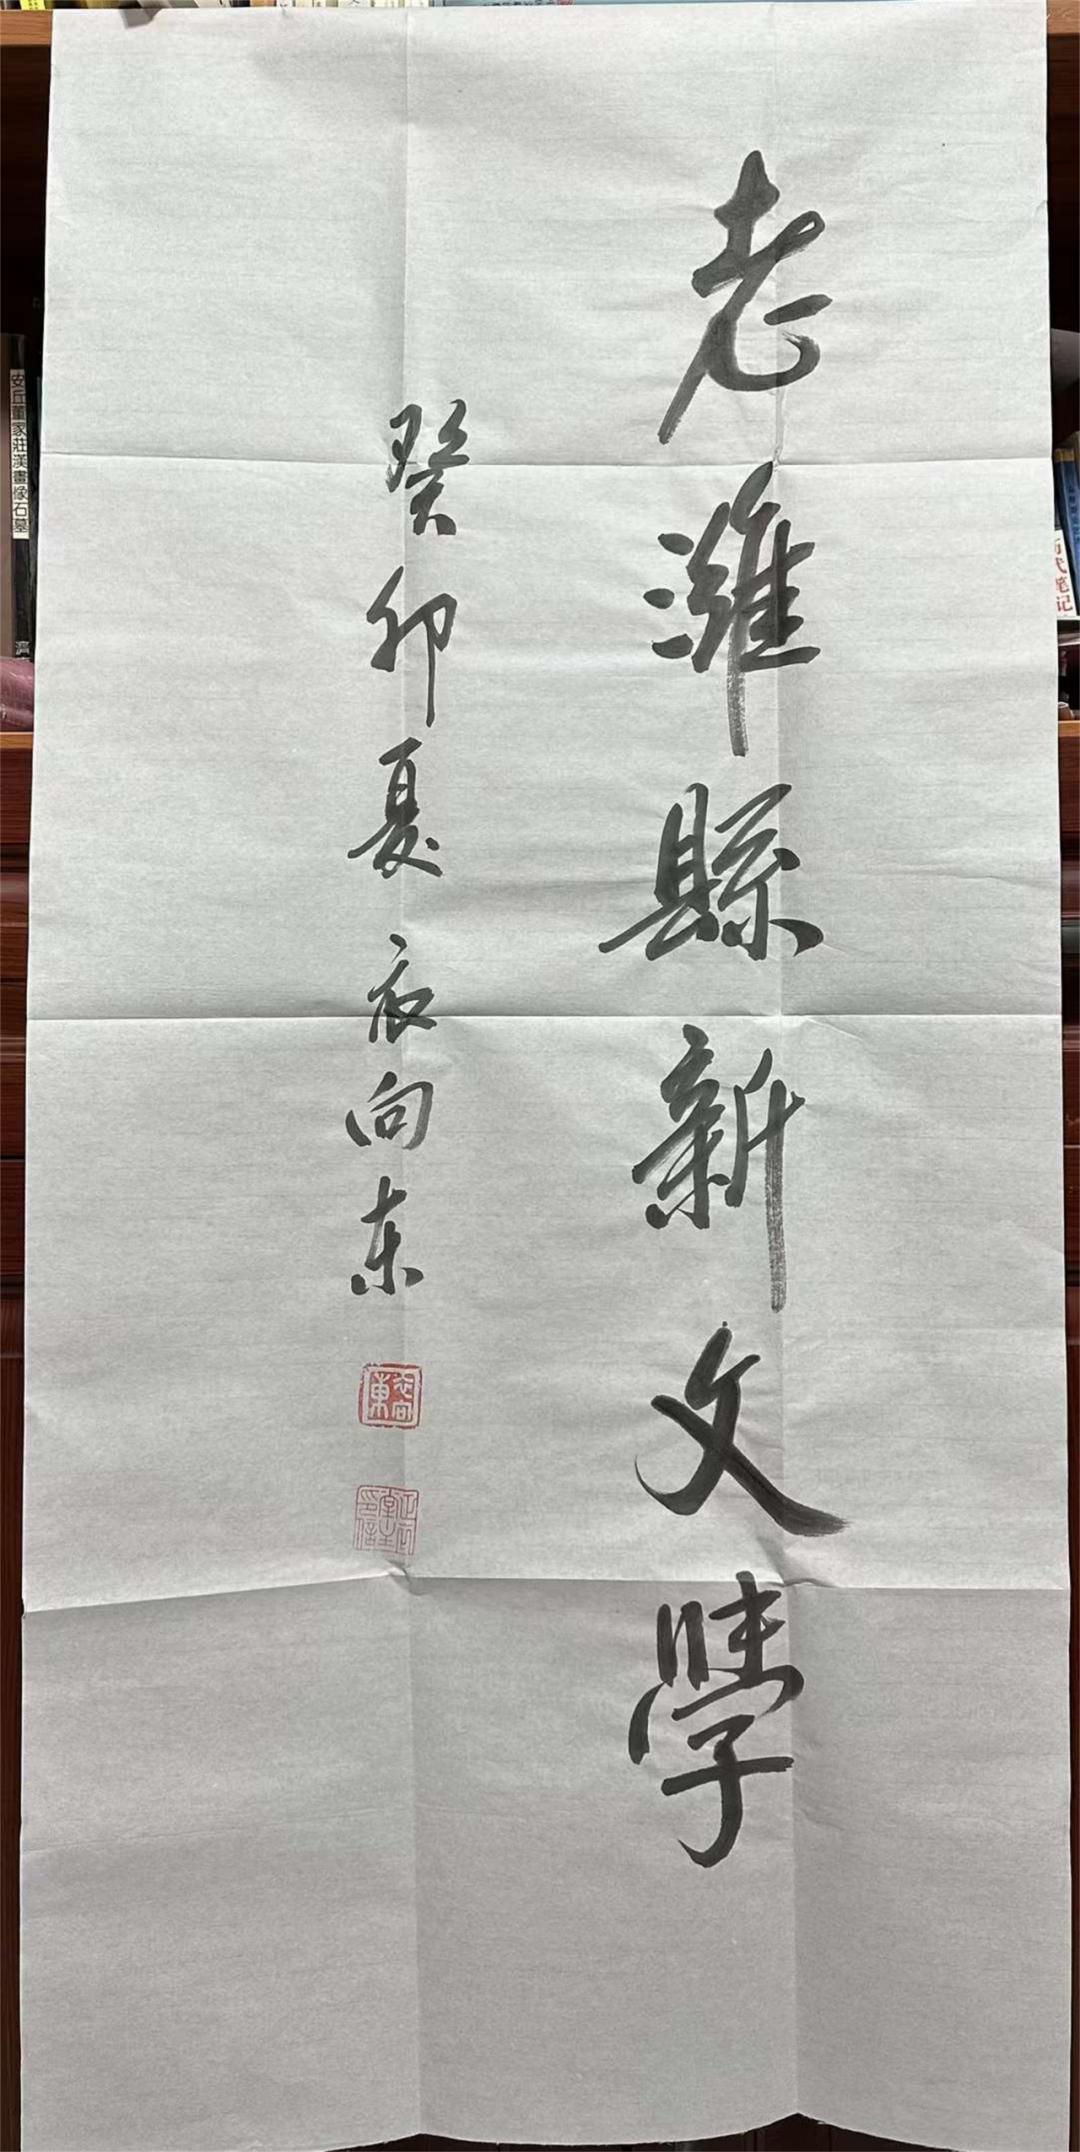 老濰縣新文學
癸卯夏 衣向东
衣向東
安丘董家莊漢畫像石墓
历代笔记